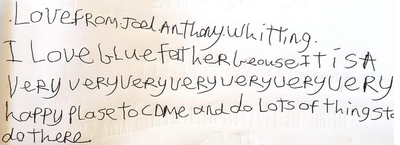 .LOVEFROM.JOEL ANTHONY.Whitting.
I LOVE bLUE fatherbeouse IT iSA
Very veryVeryveryveryveryvery
happy plase to COME and do Lots of thingsto
do there